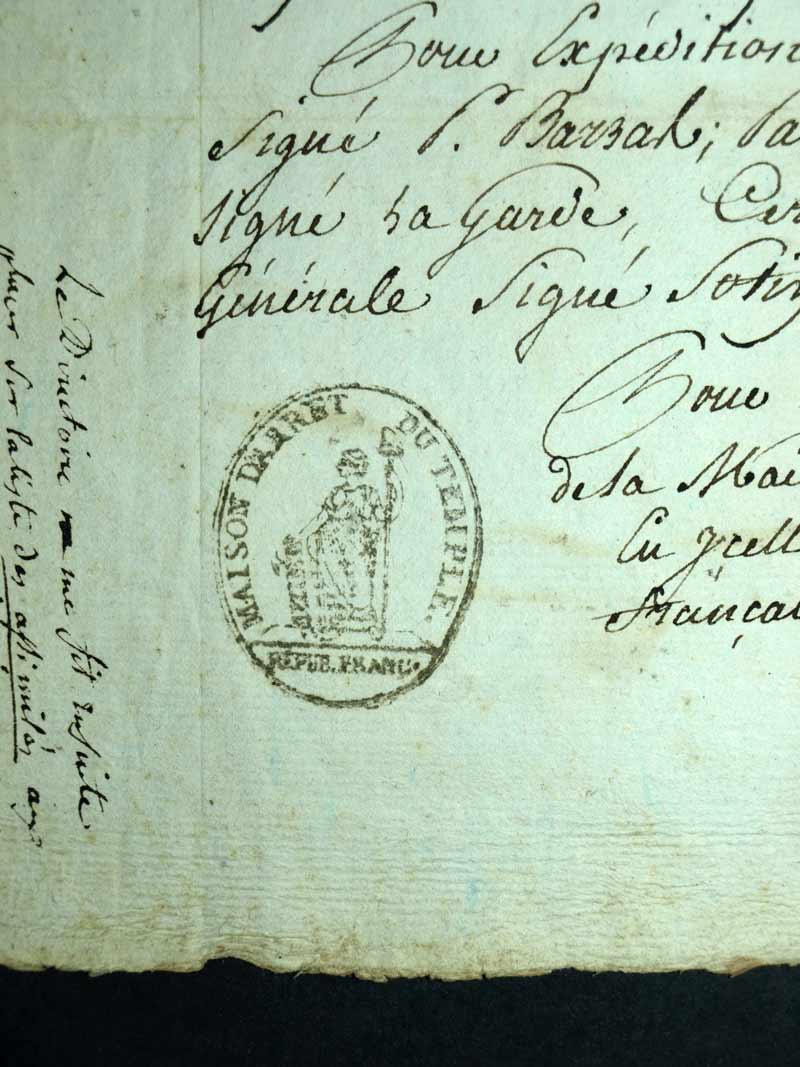 Pour Expédition
Signé P. Barras; Pa
signé La Garde, Cer
Générale Signé Sotin
Pour
de la Mai
En
Françai
MAISON D'ARRET DU TEMPLE.
REPUB. FRANC.
Le Directoire me fit ensuite
placer sur la liste des assimilés aux